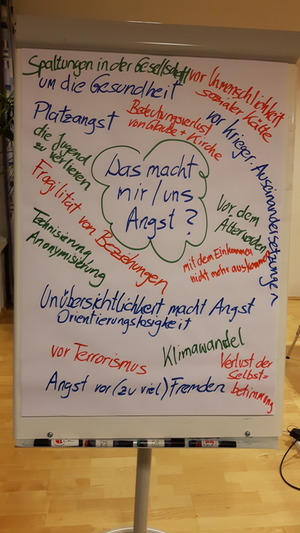 Spaltungen in der Gesellschaft
um die Gesundheit
vor Unmenschlichkeit
sozialer Kälte
Platzangst
Bedeutungsverlust
von Glaube + Kirche
vor Kriegen, Auseinandersetzungen
die Jugend
zu verlieren
Das macht
mir/uns
Angst?
Fragilität von Beziehungen
Vor dem
Älterwerden
Technisierung
Anonymisierung
mit dem Einkommen
nicht mehr auskommen
Unübersichtlichkeit macht Angst
Orientierungslosigkeit
vor Terrorismus
Klimawandel
Verlust der
Selbst=
bestimmung
Angst vor (zu viel) Fremden